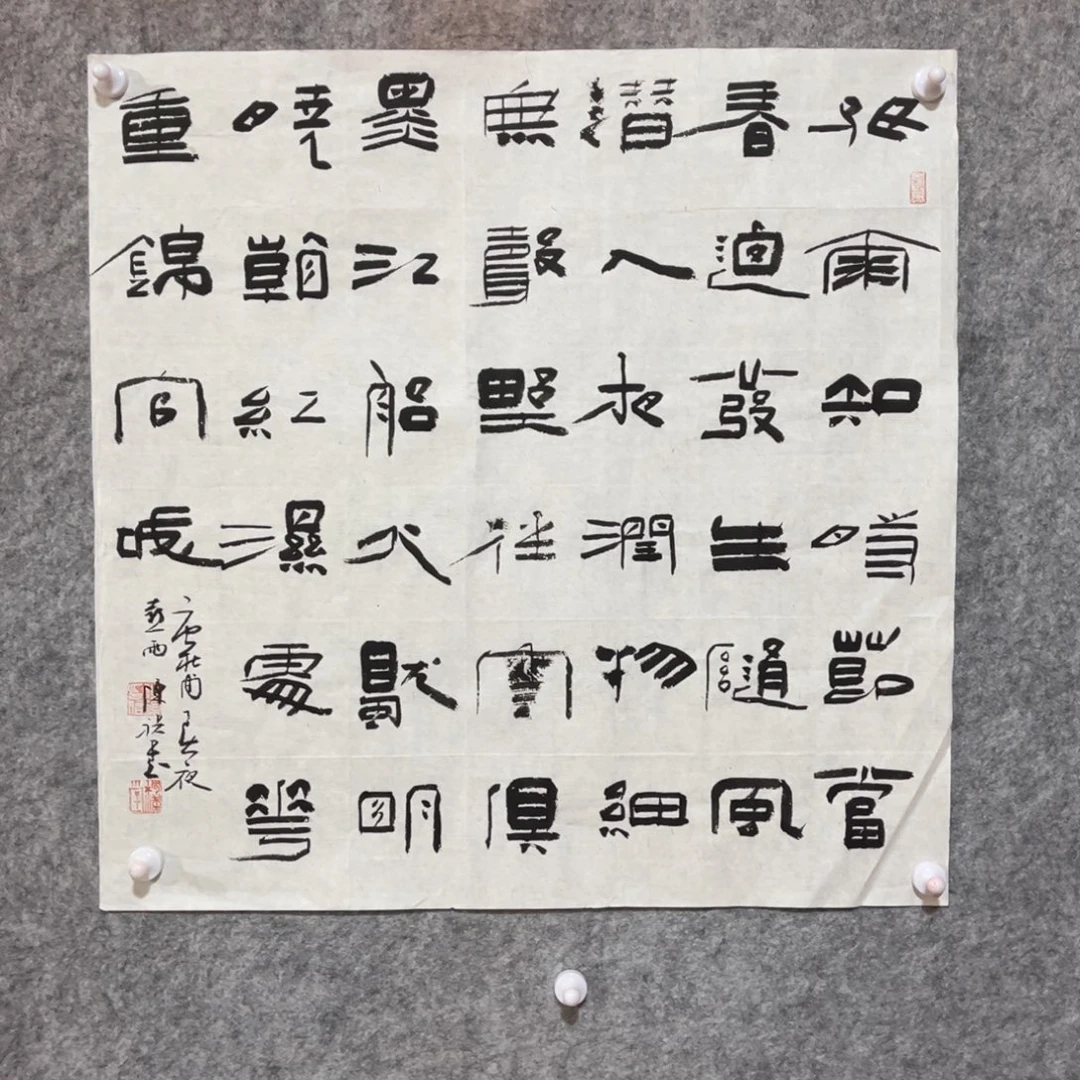 好雨知時節當
春迺發生隨風
潛入夜潤物細
無聲野徑雲俱
黑江船火獨明
曉看紅濕處華
重錦官城
唐杜甫春夜
喜雨 陳